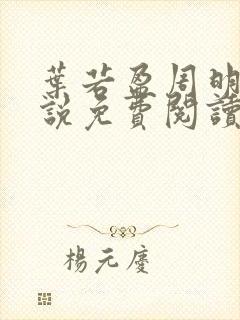 葉若盈周明
說免費閱讀
楊元慶